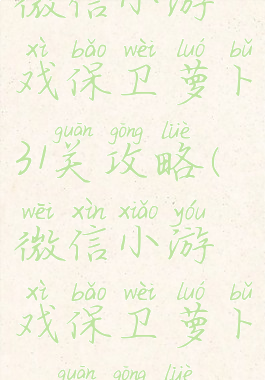 微信小游
xì bǎo wèi luó bǔ
戏保卫萝卜
guān gōng lüè
31关攻略(
wēi xìn xiǎo yóu
微信小游
xì bǎo wèi luó bǔ
戏保卫萝卜
guān gōng lüè